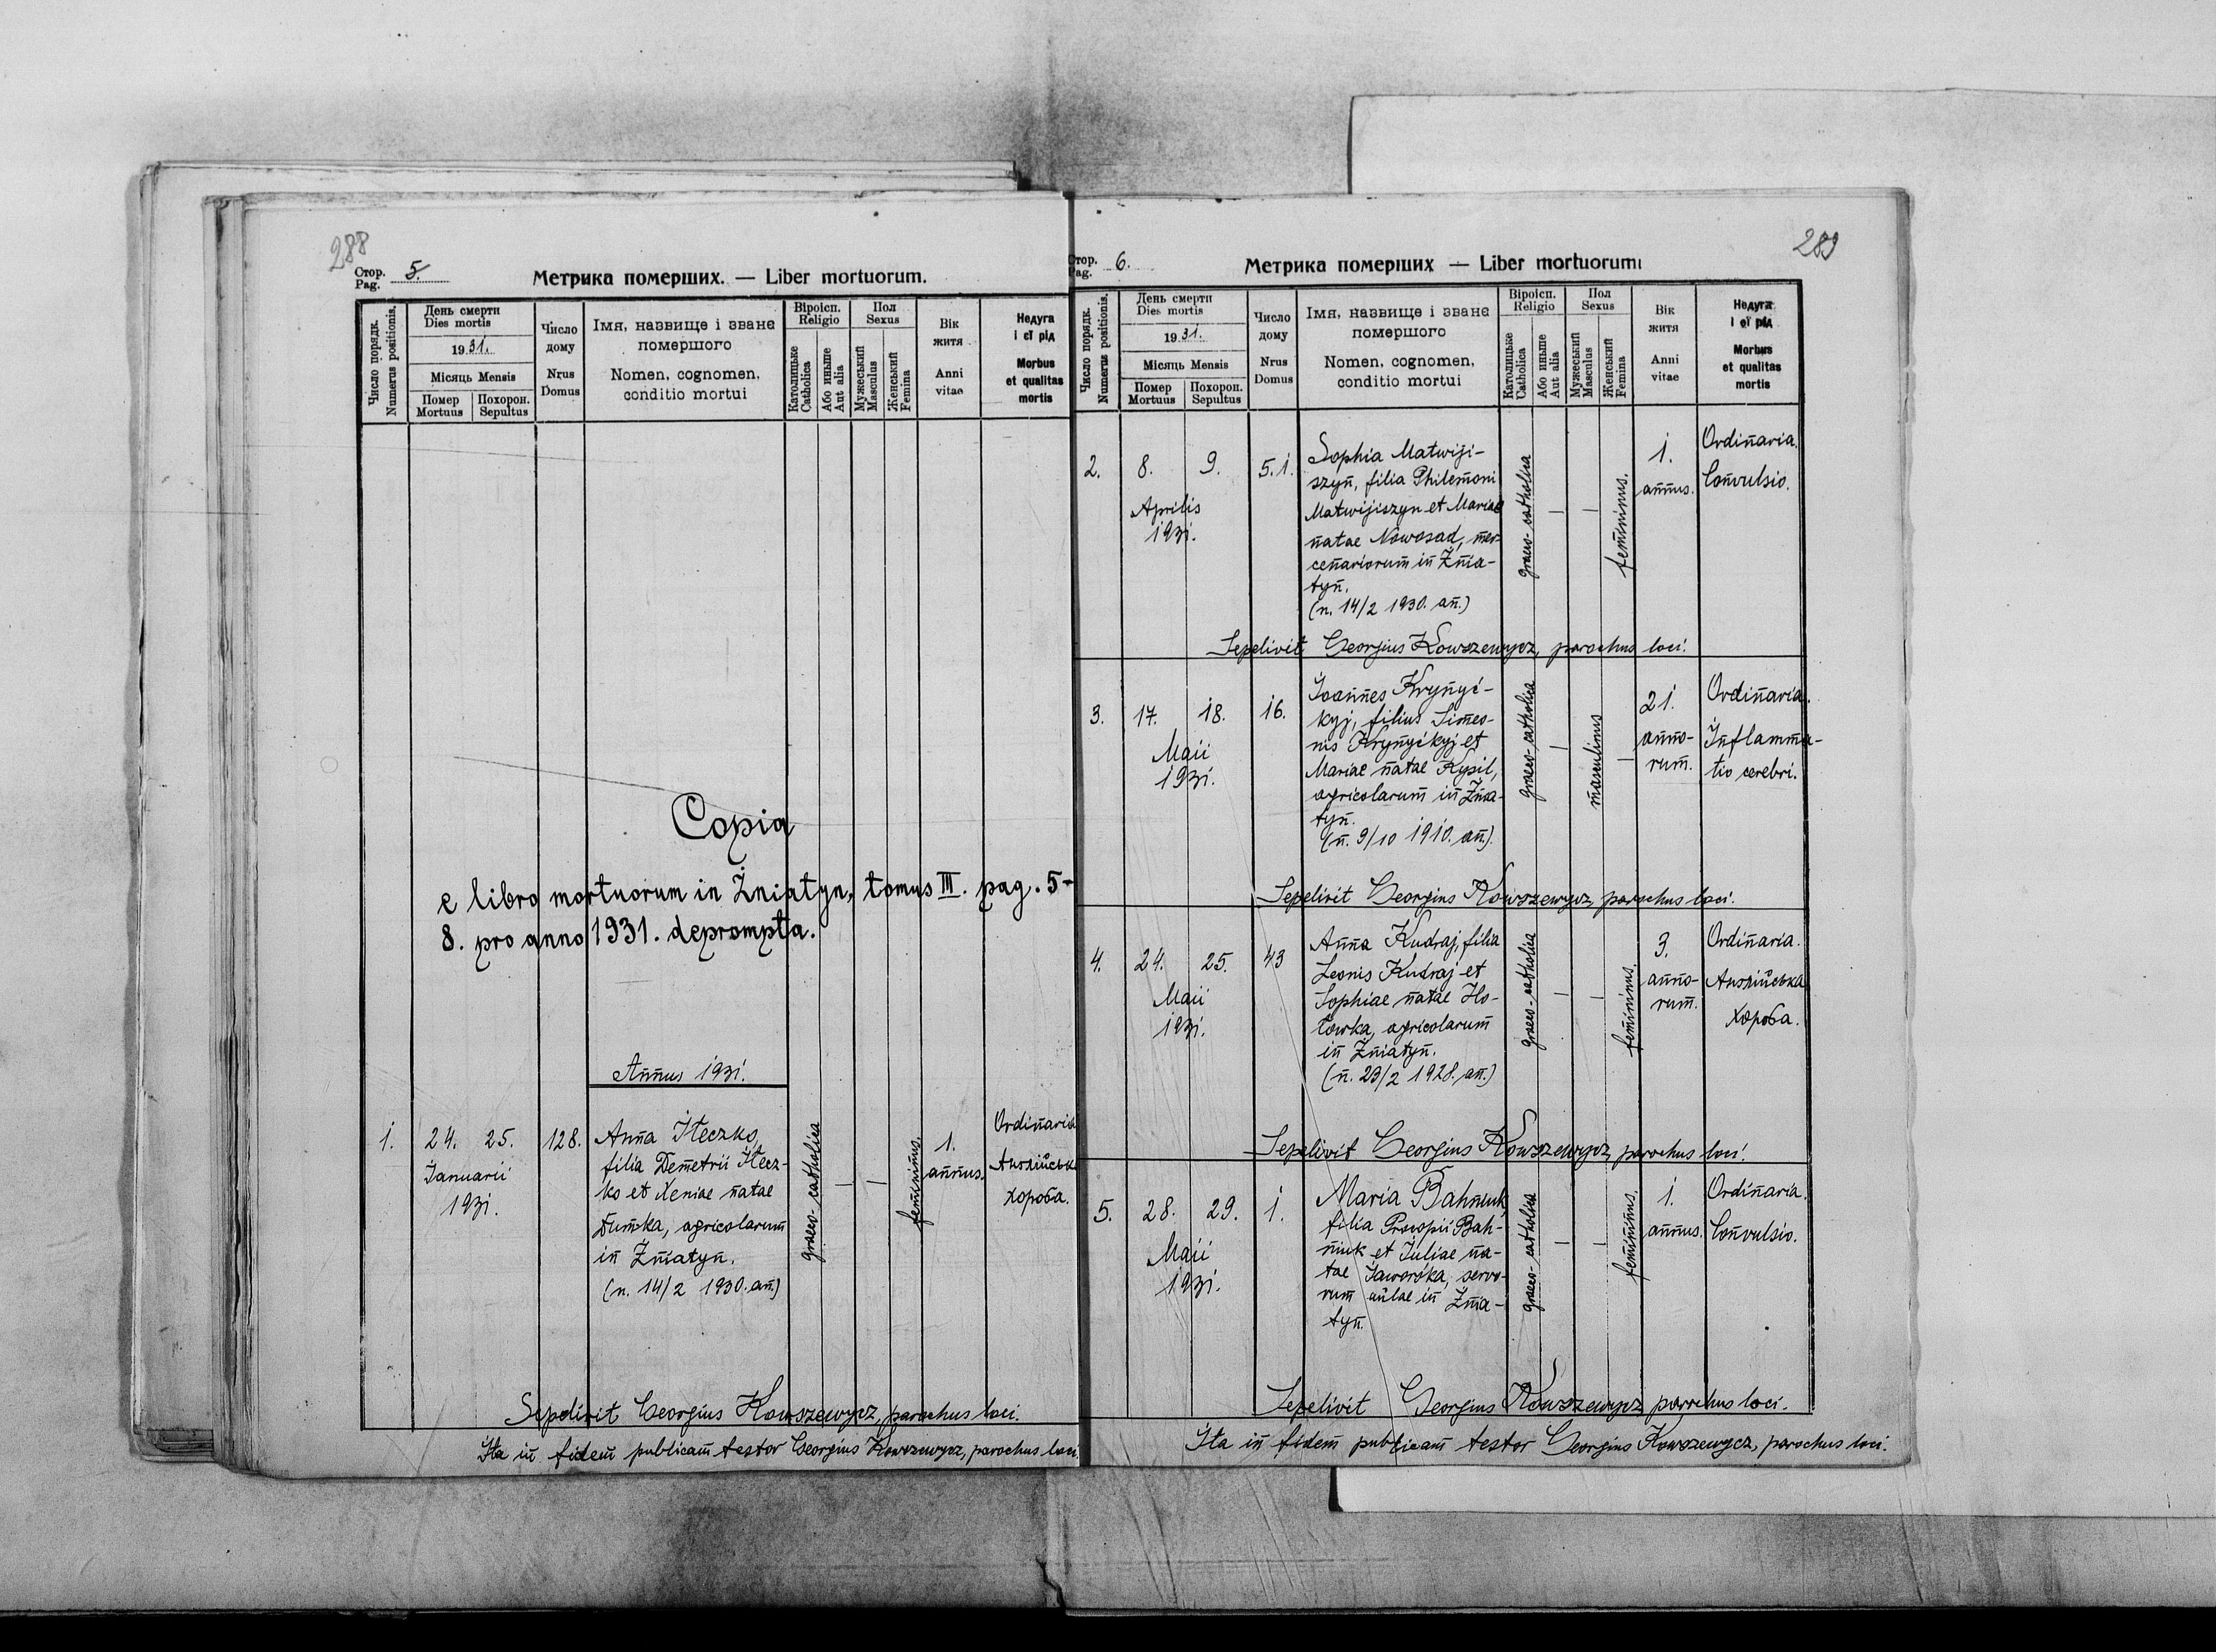 288
Стор. 5.
Pag.
Метрика померших. — Liber mortuorum.
Число порядк.
Numerus positionis.
День смерти
Dies mortis
1931.
Місяць Mensis
Помер
Mortuus
Похорон.
Sepultus
Число
дому
Nrus
Domus
Імя, назвище і зване
помершого
Nomen, cognomen,
conditio mortui
Віроісп.
Religio
Католицьке
Catholica
Або иньше
Aut alia
Пол
Sexus
Мужеський
Masculus
Женський
Femina
Вік
житя
Anni
vitae
Недуга
і єї рід
Morbus
et qualitas
mortis
Copia
e libro mortuorum in Żniatyn, tomus III. pag. 5-
8. pro anno 1931. deprompta.
Annus 1931.
1.
24. 25.
Januarii
1931.
128.
Anna Iteczko,
filia Demetrii Itecz-
ko et Xeniae natae
Dumka, agricolarum
in Żniatyn.
(n. 14/2 1930. an.)
graeco-catholica
—
—
femininus.
1.
annus.
Ordinaria
Англійська
хороба.
Sepelivit Georgius Kowszewycz, parochus loci.
Ita in fidem publicam testor Georgius Kowszewycz, parochus loci.
289
Стор. 6.
Pag.
Метрика померших — Liber mortuorum
Число порядк.
Numerus positionis.
День смерти
Dies mortis
1931.
Місяць Mensis
Помер
Mortuus
Похорон.
Sepultus
Число
дому
Nrus
Domus
Імя, назвище і зване
помершого
Nomen, cognomen,
conditio mortui
Віроісп.
Religio
Католицьке
Catholica
Або иньше
Aut alia
Пол
Sexus
Мужеський
Masculus
Женський
Femina
Вік
житя
Anni
vitae
Недуга
і єї рід
Morbus
et qualitas
mortis
2.
8. 9.
Aprilis
1931.
51.
Sophia Matwiji-
szyn, filia Philemoni
Matwijiszyn et Mariae
natae Nowosad, mer-
cenariorum in Żnia-
tyn.
(n. 14/2 1930. an.)
graeco-catholica
—
—
femininus.
1.
annus.
Ordinaria.
Convulsio.
Sepelivit Georgius Kowszewycz, parochus loci.
3.
17. 18.
Maii
1931.
16.
Joannes Krynyć-
kyj, filius Simeo-
nis Krynyćkyj et
Mariae natae Kysil,
agricolarum in Żnia-
tyn.
(n. 9/10 1910. an.)
graeco-catholica
—
masculinus
—
21.
anno-
rum.
Ordinaria.
Inflamma-
tio cerebri.
Sepelivit Georgius Kowszewycz, parochus loci.
4.
24. 25.
Maii
1931.
43
Anna Kudraj, filia
Leonis Kudraj et
Sophiae natae Ho-
towka, agricolarum
in Żniatyn.
(n. 23/2 1928. an.)
graeco-catholica
—
—
femininus.
3.
anno-
rum.
Ordinaria.
Англійська
хороба.
Sepelivit Georgius Kowszewycz parochus loci.
5.
28. 29.
Maii
1931.
1.
Maria Bahniuk,
filia Procopii Bah-
niuk et Juliae na-
tae Jaworśka, servo-
rum aulae in Żnia-
tyn.
graeco-catholica
—
—
femininus.
1.
annus.
Ordinaria.
Convulsio.
Sepelivit Georgius Kowszewycz parochus loci.
Ita in fidem publicam testor Georgius Kowszewycz, parochus loci.